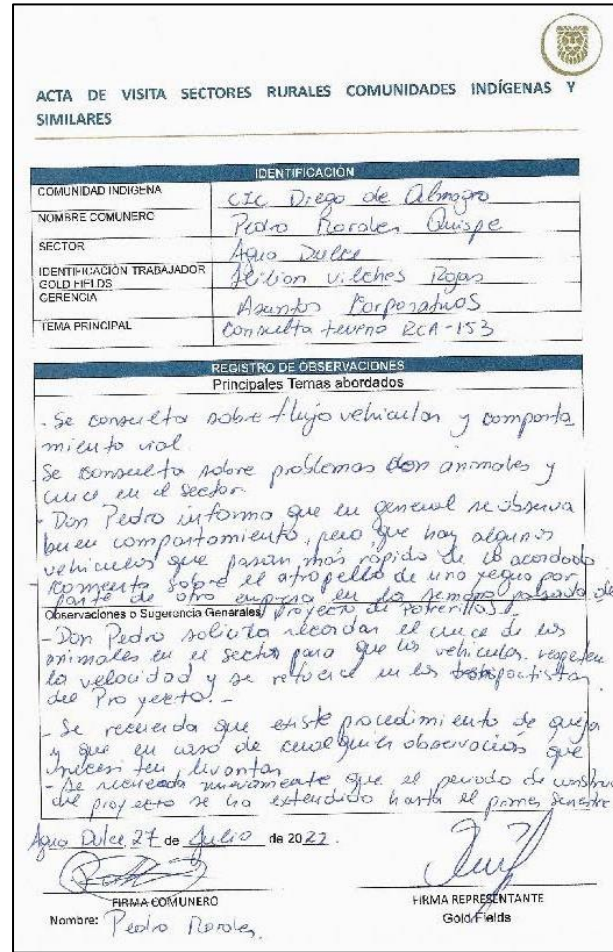 ACTA DE VISITA SECTORES RURALES COMUNIDADES INDÍGENAS Y
SIMILARES
IDENTIFICACIÓN
COMUNIDAD INDIGENA CIC Diego de Almagro
NOMBRE COMUNERO Pedro Quispe
SECTOR Agua Dulce
IDENTIFICACIÓN TRABAJADOR
GOLD FIELDS Vilches Rojas
GERENCIA Asuntos Corporativos
TEMA PRINCIPAL Consulta terreno RCA-153
REGISTRO DE OBSERVACIONES
Principales Temas abordados
- Se consulta sobre flujo vehicular y comporta
miento vial.
Se consulta sobre problemas con animales y
cruce en el sector.
- Don Pedro informa que en general se observa
buen comportamiento, pero que hay algunos
vehiculos que pasan más rápido de lo acordado
- Comenta sobre el atropello de una yegua por
parte de otra empresa en la semana pasada de
Observaciones o Sugerencia Generales/ proyecto de Potrerillos).
- Don Pedro solicita recordar el cruce de los
animales en el sector para que los vehiculos respeten
la velocidad y se refuerce en los transportistas
del Proyecto.-
- Se recuerda que existe procedimiento de queja
y que en caso de cualquier observación que
necesiten levantar
- Se recuerda nuevamente que el periodo de constru
del proyecto se ha extendido hasta el primer semestre
Agua Dulce, 27 de Julio de 2022.
FIRMA COMUNERO
FIRMA REPRESENTANTE
Gold Fields
Nombre: Pedro